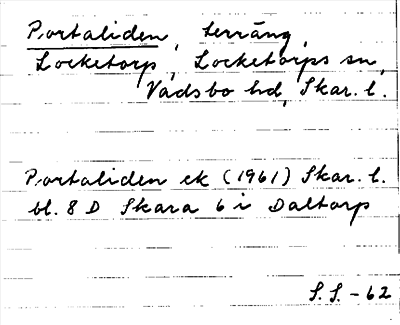 Portaliden, terräng,
Locketorp, Locketorps sn,
Vadsbo hd, Skar. l.
Portaliden ek (1961) Skar. l.
bl. 8 D Skara 6 i Daltorp
S.S. - 62